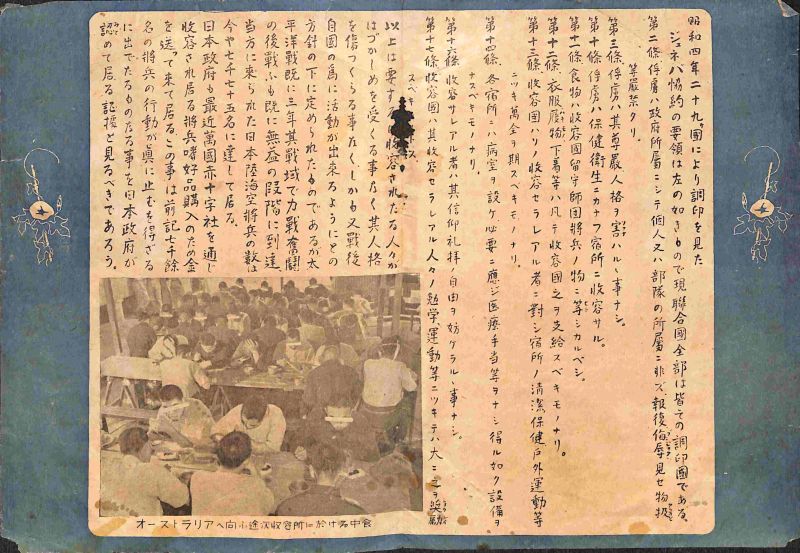 昭和四年二十九國により調印を見た
ジュネバ協約の要領は左の如きもので現聯合國全部は皆その調印國である。
第二條俘虜ハ政府所屬ニシテ個人又ハ部隊の所屬ニ非ズ、報復侮辱見セ物扱
等嚴禁タリ
第三條、俘虜ハ其尊嚴人格ヲ害ハルヽ事ナシ。
第十條、俘虜ハ保健衛生ニカナフ宿所ニ收容サル。
第十一條、食物ハ收容國留守師團將兵ノ物ニ等シカルベシ。
第十二條、衣服履物下着等ハ凡テ收容國之ヲ支給スベキモノナリ。
第十三條、收容國ハソノ收容セラレアル者ニ對シ宿所ノ清潔保健戸外運動等
ニツキ萬全ヲ期スベキモノナリ。
第十四條、各宿所ニハ病室ヲ設ケ必要ニ應ジ医療手当等ヲナシ得ル如ク設備ヲ
ナスベキモノナリ。
第十六條、收容サレアル者ハ其信仰礼拝ノ自由ヲ妨ゲラルヽ事ナシ。
第十七條、收容國ハ其收容セラレアル人々ノ勉学、運動等ニツキテハ大ニ之ヲ奨励
スベキ
以上は要するに收容されたる人々が
はづかしめを受くる事なく其人格
を傷つくらる事なく、しかも又戰後
自國の爲に活動が出來るようにとの
方針の下に定められたものであるが太
平洋戰既に三年其戰域で力戰奮鬪
の後戰ふも既に無益の段階に到達
当方に來られた日本陸海空將兵の数は
今や七千七十五名に達して居る。
日本政府も最近萬國赤十字社を通じ
收容され居る將兵嗜好品購入のため金
を送って來て居るこの事は前記七千餘
名の將兵の行動が眞に止むを得ざる
に出でたるものたる事を日本政府が
認めて居る証據と見るべきであろう。
オーストラリアへ向ふ途次收容所に於ける中食